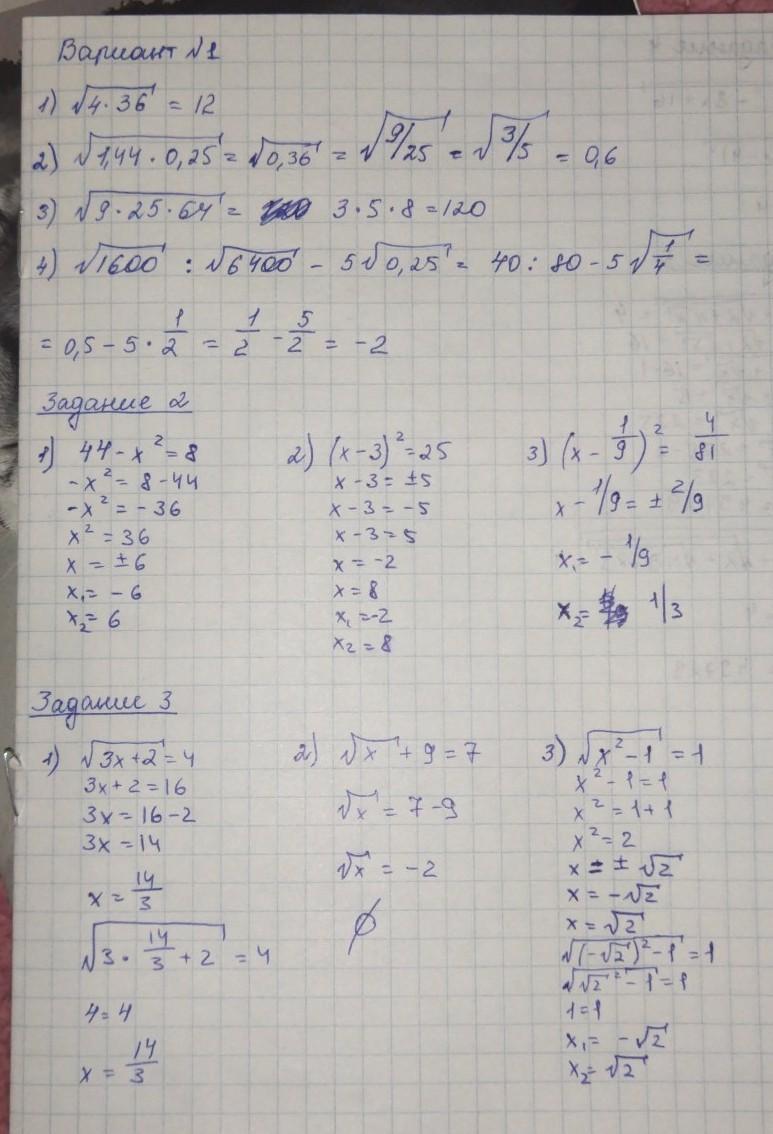 Вариант №1
1) √4·36 = 12
2) √1,44·0,25 = √0,36 = √9/25 = √3/5 = 0,6
3) √9·25·64 = 3·5·8 = 120
4) √1600 : √6400 - 5√0,25 = 40 : 80 - 5√1/4 =
= 0,5 - 5·1/2 = 1/2 - 5/2 = -2
Задание 2
1) 44 - x² = 8
-x² = 8 - 44
-x² = -36
x² = 36
x = ±6
x₁ = -6
x₂ = 6
2) (x-3)² = 25
x - 3 = ±5
x - 3 = -5
x - 3 = 5
x = -2
x = 8
x₁ = -2
x₂ = 8
3) (x - 1/9)² = 4/81
x - 1/9 = ± 2/9
x₁ = - 1/9
x₂ = 1/3
Задание 3
1) √3x+2 = 4
3x+2 = 16
3x = 16-2
3x = 14
x = 14/3
√3·14/3+2 = 4
4 = 4
x = 14/3
2) √x + 9 = 7
√x = 7-9
√x = -2
∅
3) √x²-1 = 1
x²-1 = 1
x² = 1+1
x² = 2
x = ± √2
x = -√2
x = √2
√(-√2)²-1 = 1
√√2²-1 = 1
1 = 1
x₁ = -√2
x₂ = √2